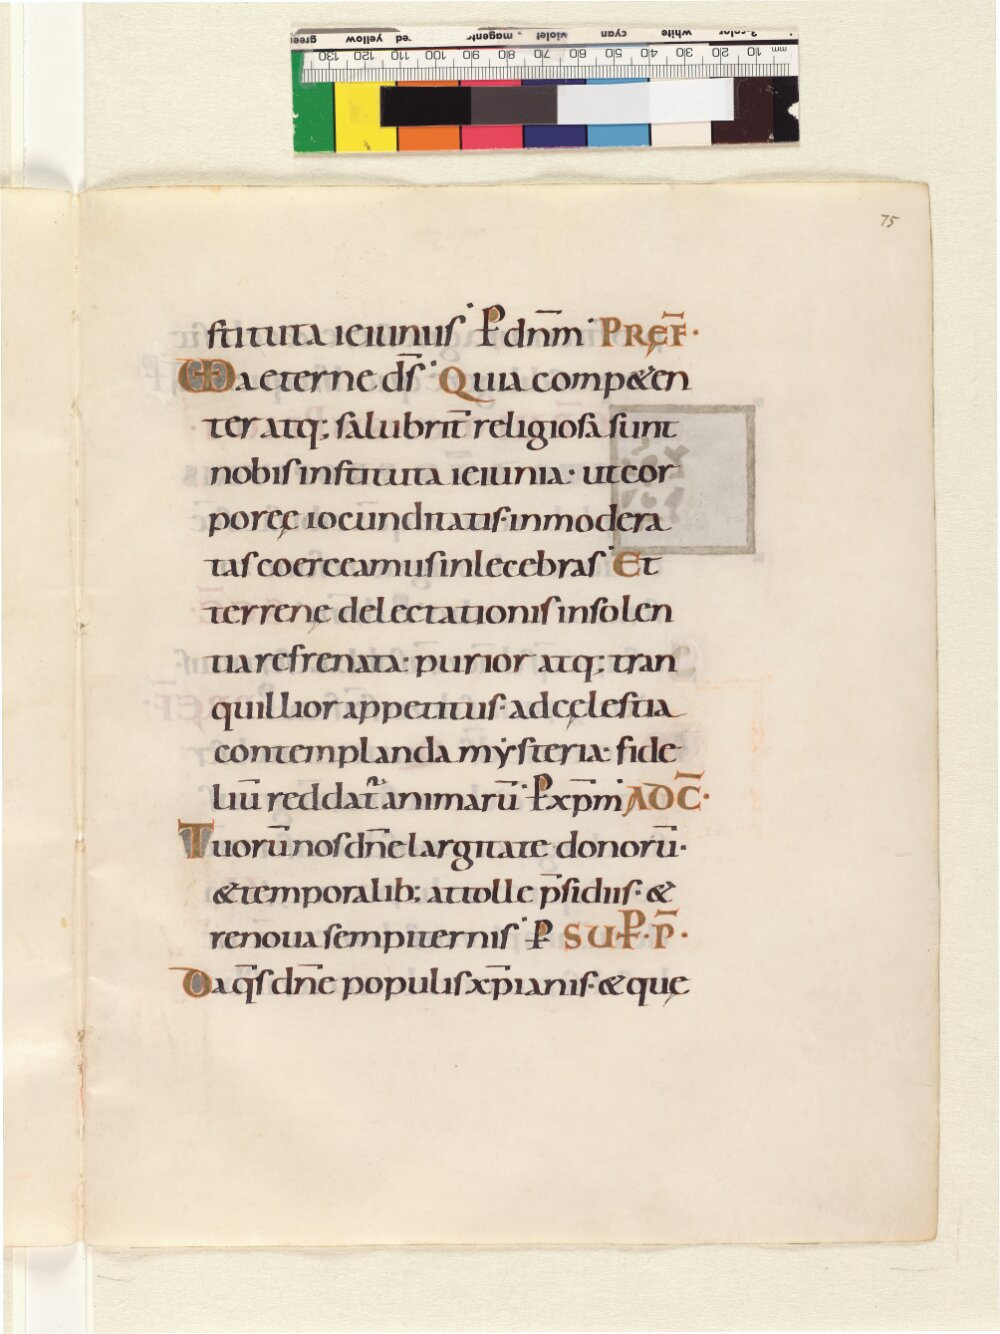 75
stituta ieiuniis P dn̄m PREF̄·
UD aeterne ds̄ Quia comp&en
ter atq; salubrit̄ religiosa sunt
nobis instituta ieiunia· ut cor
poreę iocunditatis· inmodera
tas coerceamus inlecebras Et
terrenę delectationis insolen
tia refrenata· purior atq; tran
quillior appetitus· ad cęlestia
contemplanda mẏsteria· fide
liū reddat̄ animarū P xp̄m AD C̄·
Tuorū nos dn̄e largitate donorū·
& temporalib; attolle p̄sidiis· &
renoua sempiternis P SUP·P̄·
Da qs̄ dn̄e populis xp̄ianis· & quę